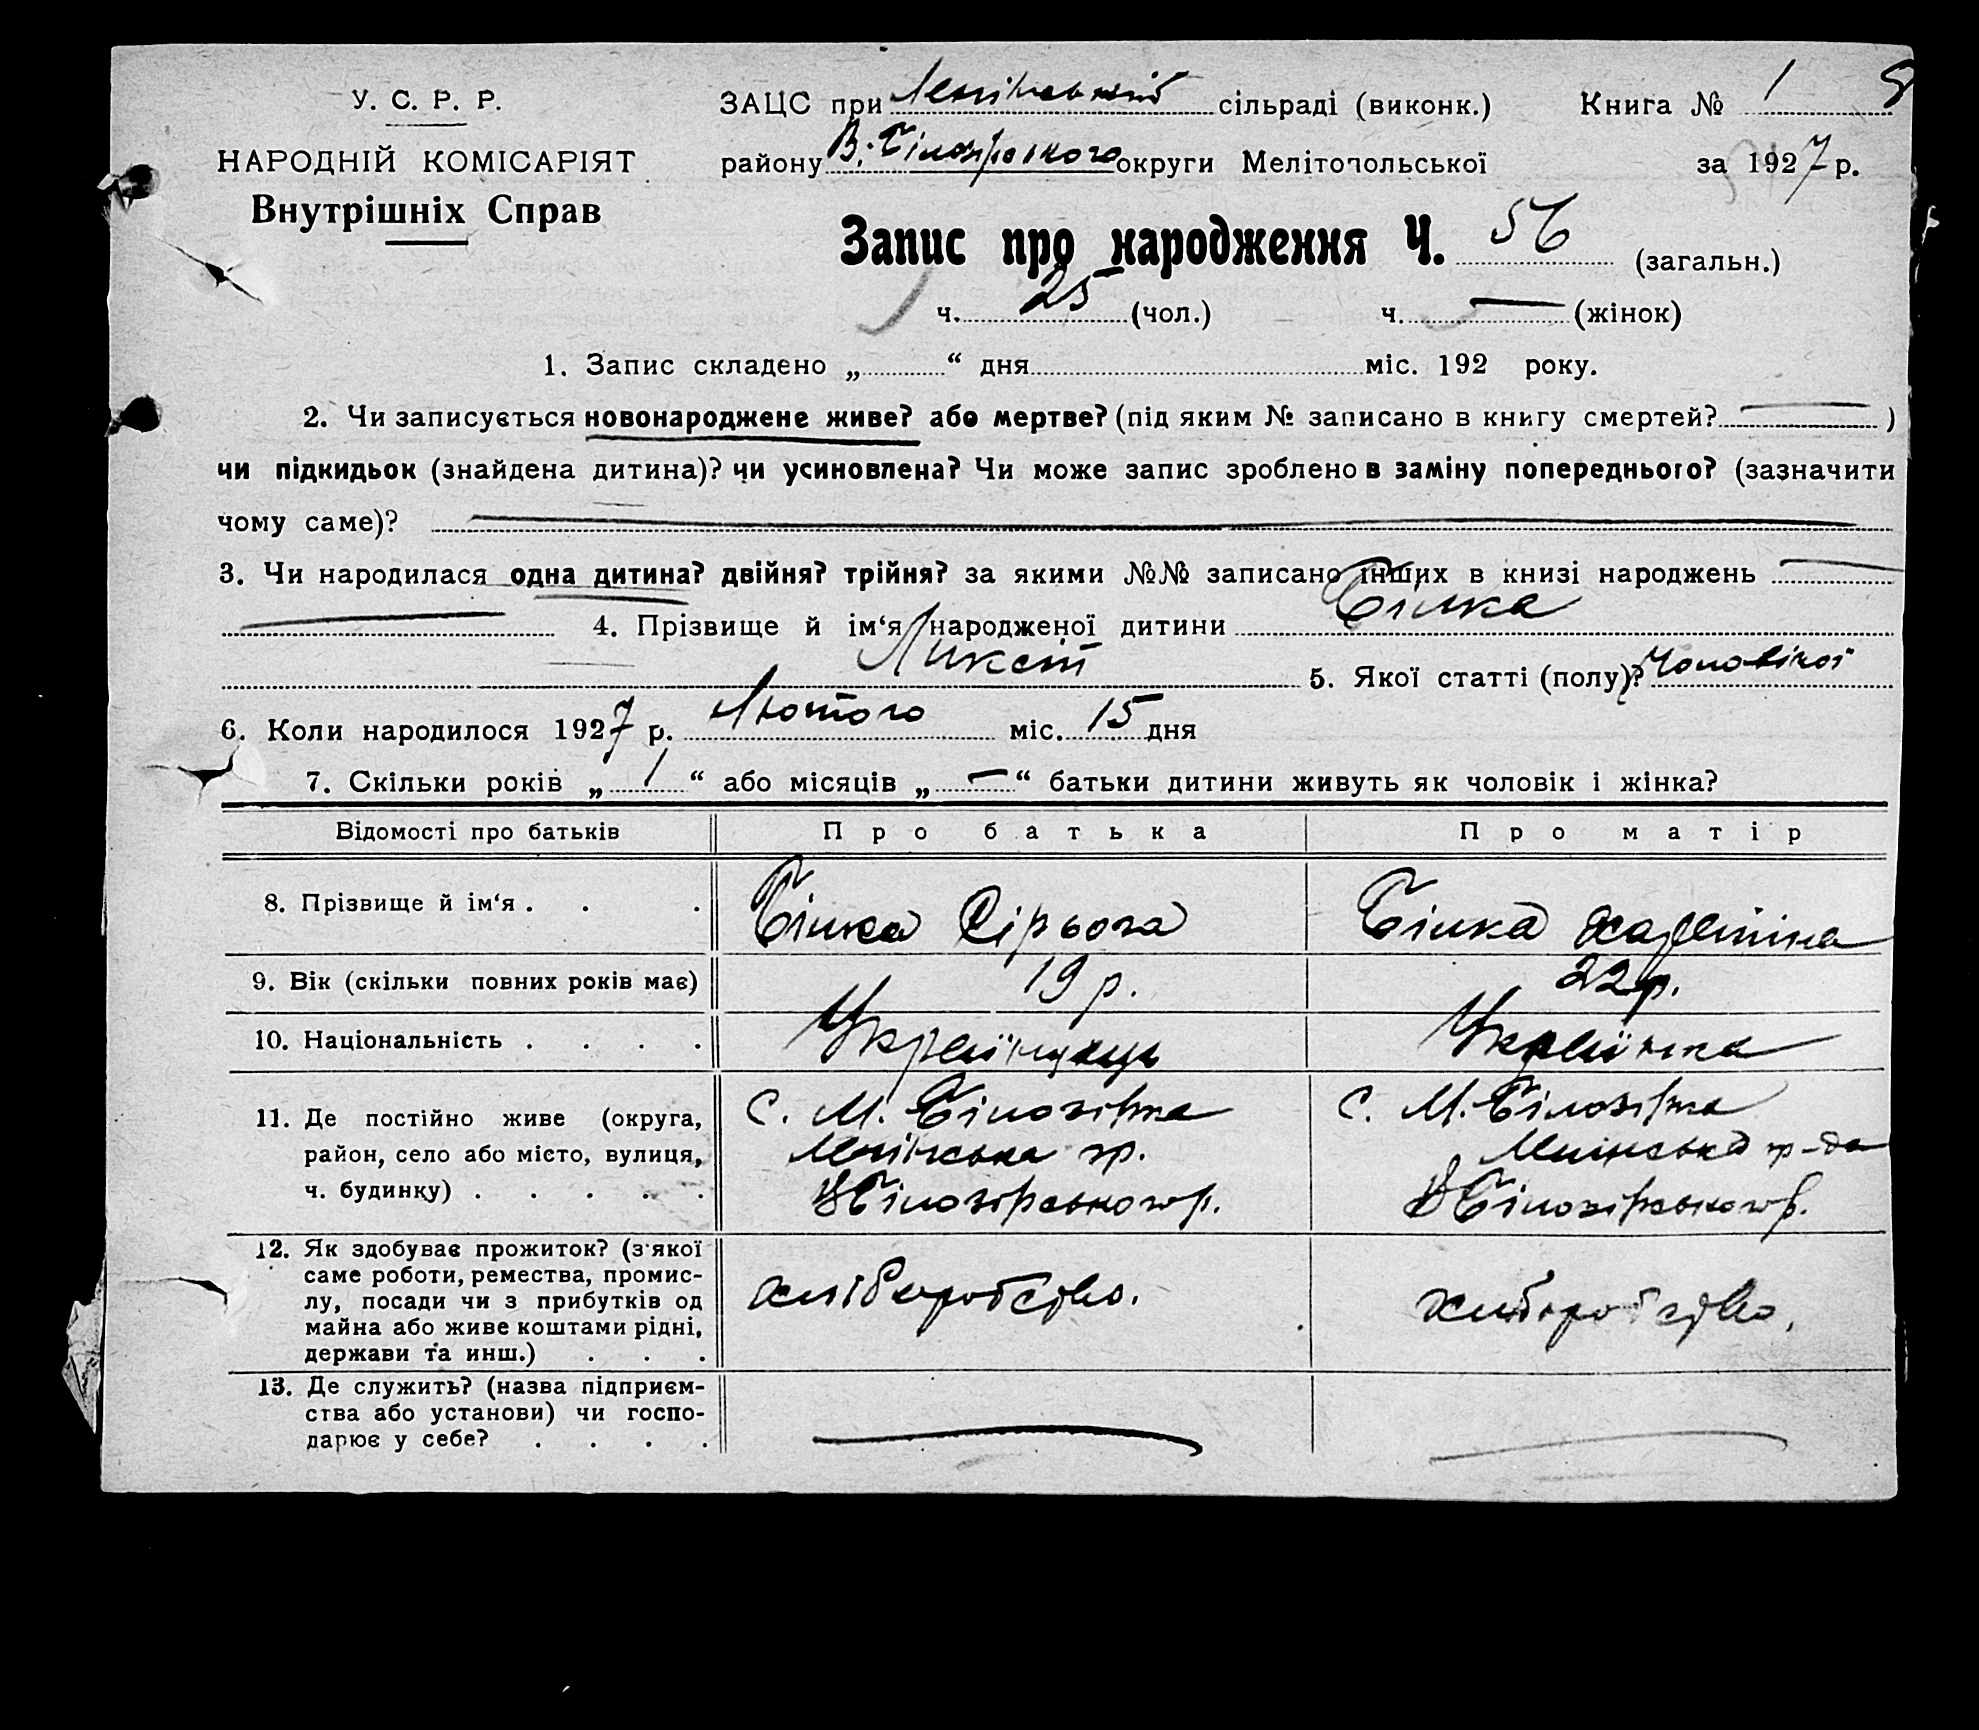 У. С. Р. Р.
НАРОДНІЙ КОМІСАРІЯТ
Внутрішніх Справ
ЗАЦС при Ленінській сільраді (виконк.) Книга № 1
району В. Білозірського округи Мелітопольської за 1927 р.
Запис про народження Ч. 56 (загальн.)
ч. 25 (чол.) ч. — (жінок)
1. Запис складено „ “ дня міс. 192 року.
2. Чи записується новонароджене живе? або мертве? (під яким № записано в книгу смертей? — )
чи підкидьок (знайдена дитина)? чи усиновлена? Чи може запис зроблено в заміну попереднього? (зазначити
чому саме)? —
3. Чи народилася одна дитина? двійня? трійня? за якими №№ записано інших в книзі народжень —
— 4. Прізвище й ім‘я народженої дитини Білка
5. Якої статті (полу)? Чоловічої
6. Коли народилося 1927 р. Лютого міс. 15 дня
7. Скільки років „ 1 “ або місяців „ — “ батьки дитини живуть як чоловік і жінка?
Відомості про батьків Про батька Про матір
8. Прізвище й ім‘я . . . Білка Сірьога Білка
9. Вік (скільки повних років має) 19 р. 22 р.
10. Національність . . . . Українець Українка
11. Де постійно живе (округа, с. М. Білозірка с. М. Білозірка
район, село або місто, вулиця, Ленінська
ч. будинку) . . . . . В Білозірського р. В Білозірського р.
12. Як здобуває прожиток? (з якої
саме роботи, ремества, промис-
лу, посади чи з прибутків од хліборобство. хліборобство.
майна або живе коштами рідні,
держави та инш.) . . .
13. Де служить? (назва підприєм-
ства або установи) чи госпо-
дарює у себе? . . . . — —